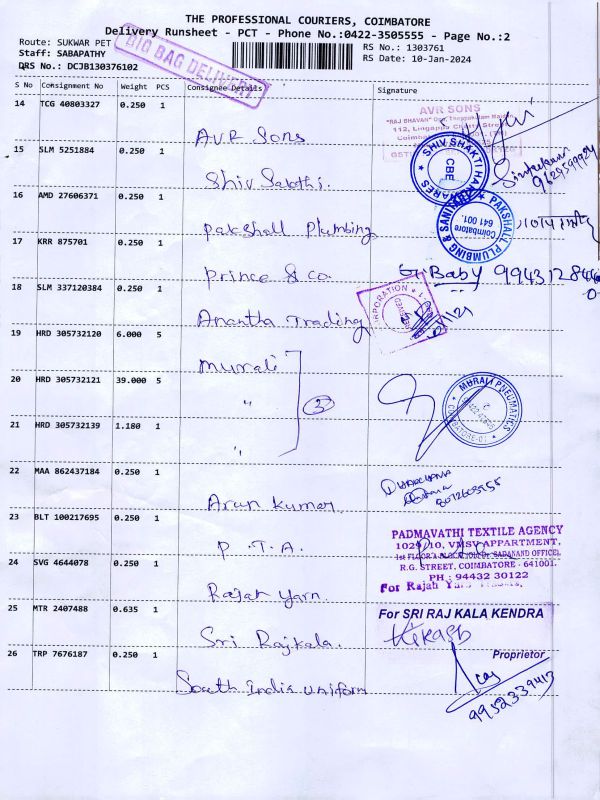 THE PROFESSIONAL COURIERS, COIMBATORE
Delivery Runsheet - PCT - Phone No.:0422-3505555 - Page No.:2
Route: SUKWAR PET
RS No.: 1303761
Staff: SABAPATHY
RS Date: 10-Jan-2024
DRS No.: DCJB130376102
BIG BAG DELIVERY
S No Consignment No Weight PCS Consignee Details Signature
14 TCG 40803327 0.250 1
AVR Sons
AVR SONS
"RAJ BHAVAN"
112, Lingappa Chetty Street
15 SLM 5251884 0.250 1
Shiv Sakthi.
SHIV SHAKTI HARDWARES
CBE
16 AMD 27606371 0.250 1
Pakshall Plumbing
PAKSHALL PLUMBING & SANITARY
Coimbatore
641 001.
17 KRR 875701 0.250 1
Prince & Co
Baby
18 SLM 337120384 0.250 1
Anantha Trading
19 HRD 305732120 6.000 5
Murali
20 HRD 305732121 39.000 5
"
3
MURALI PNEUMATICS
COIMBATORE-01
21 HRD 305732139 1.180 1
"
22 MAA 862437184 0.250 1
Arun Kumar
23 BLT 100217695 0.250 1
P.T.A.
PADMAVATHI TEXTILE AGENCY
1029/10, VMSV APPARTMENT,
R.G. STREET, COIMBATORE - 641001.
PH : 94432 30122
24 SVG 4644078 0.250 1
Rajah Yarn
For Rajah Yarn
25 MTR 2407488 0.635 1
Sri Rajkala.
For SRI RAJ KALA KENDRA
Proprietor
26 TRP 7676187 0.250 1
South India Uniform
9952339413